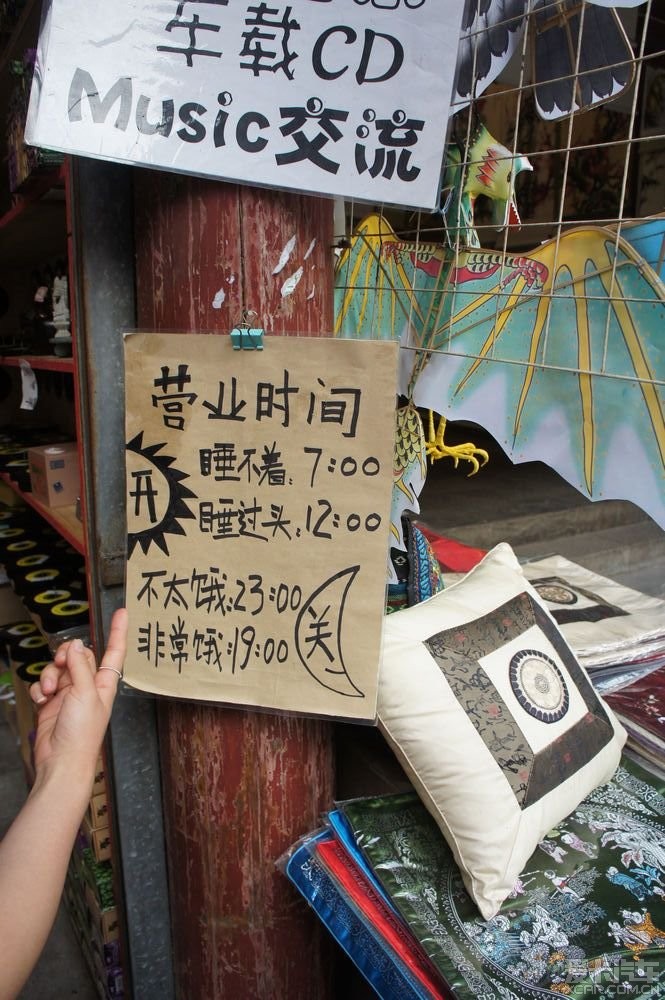 车载CD
Music交流
营业时间
开
睡不着:7:00
睡过头:12:00
不太饿:23:00
非常饿:19:00
关
爱卡汽车
XCAR.COM.CN